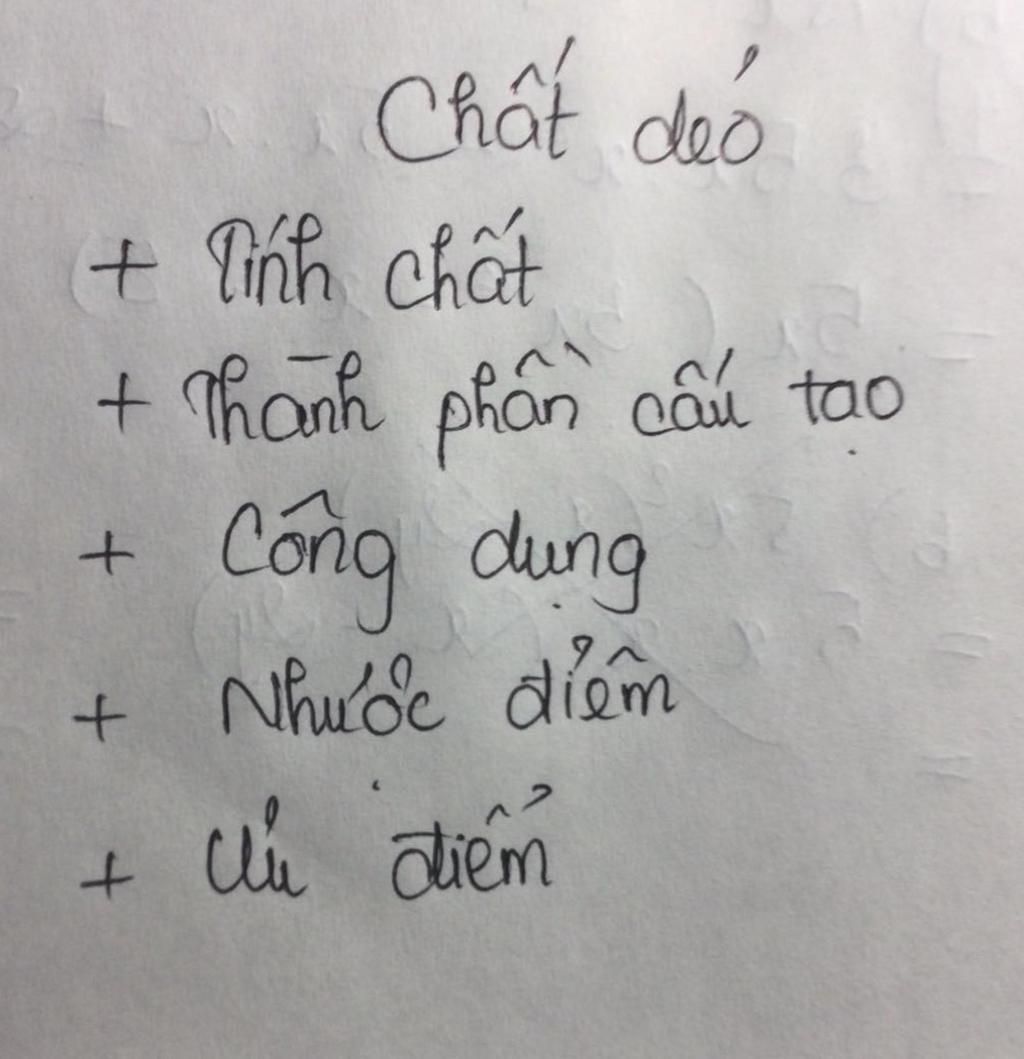 Chất dẻo
+ Tính chất
+ Thành phần cấu tạo
+ Công dụng
+ Nhược điểm
+ Ưu điểm